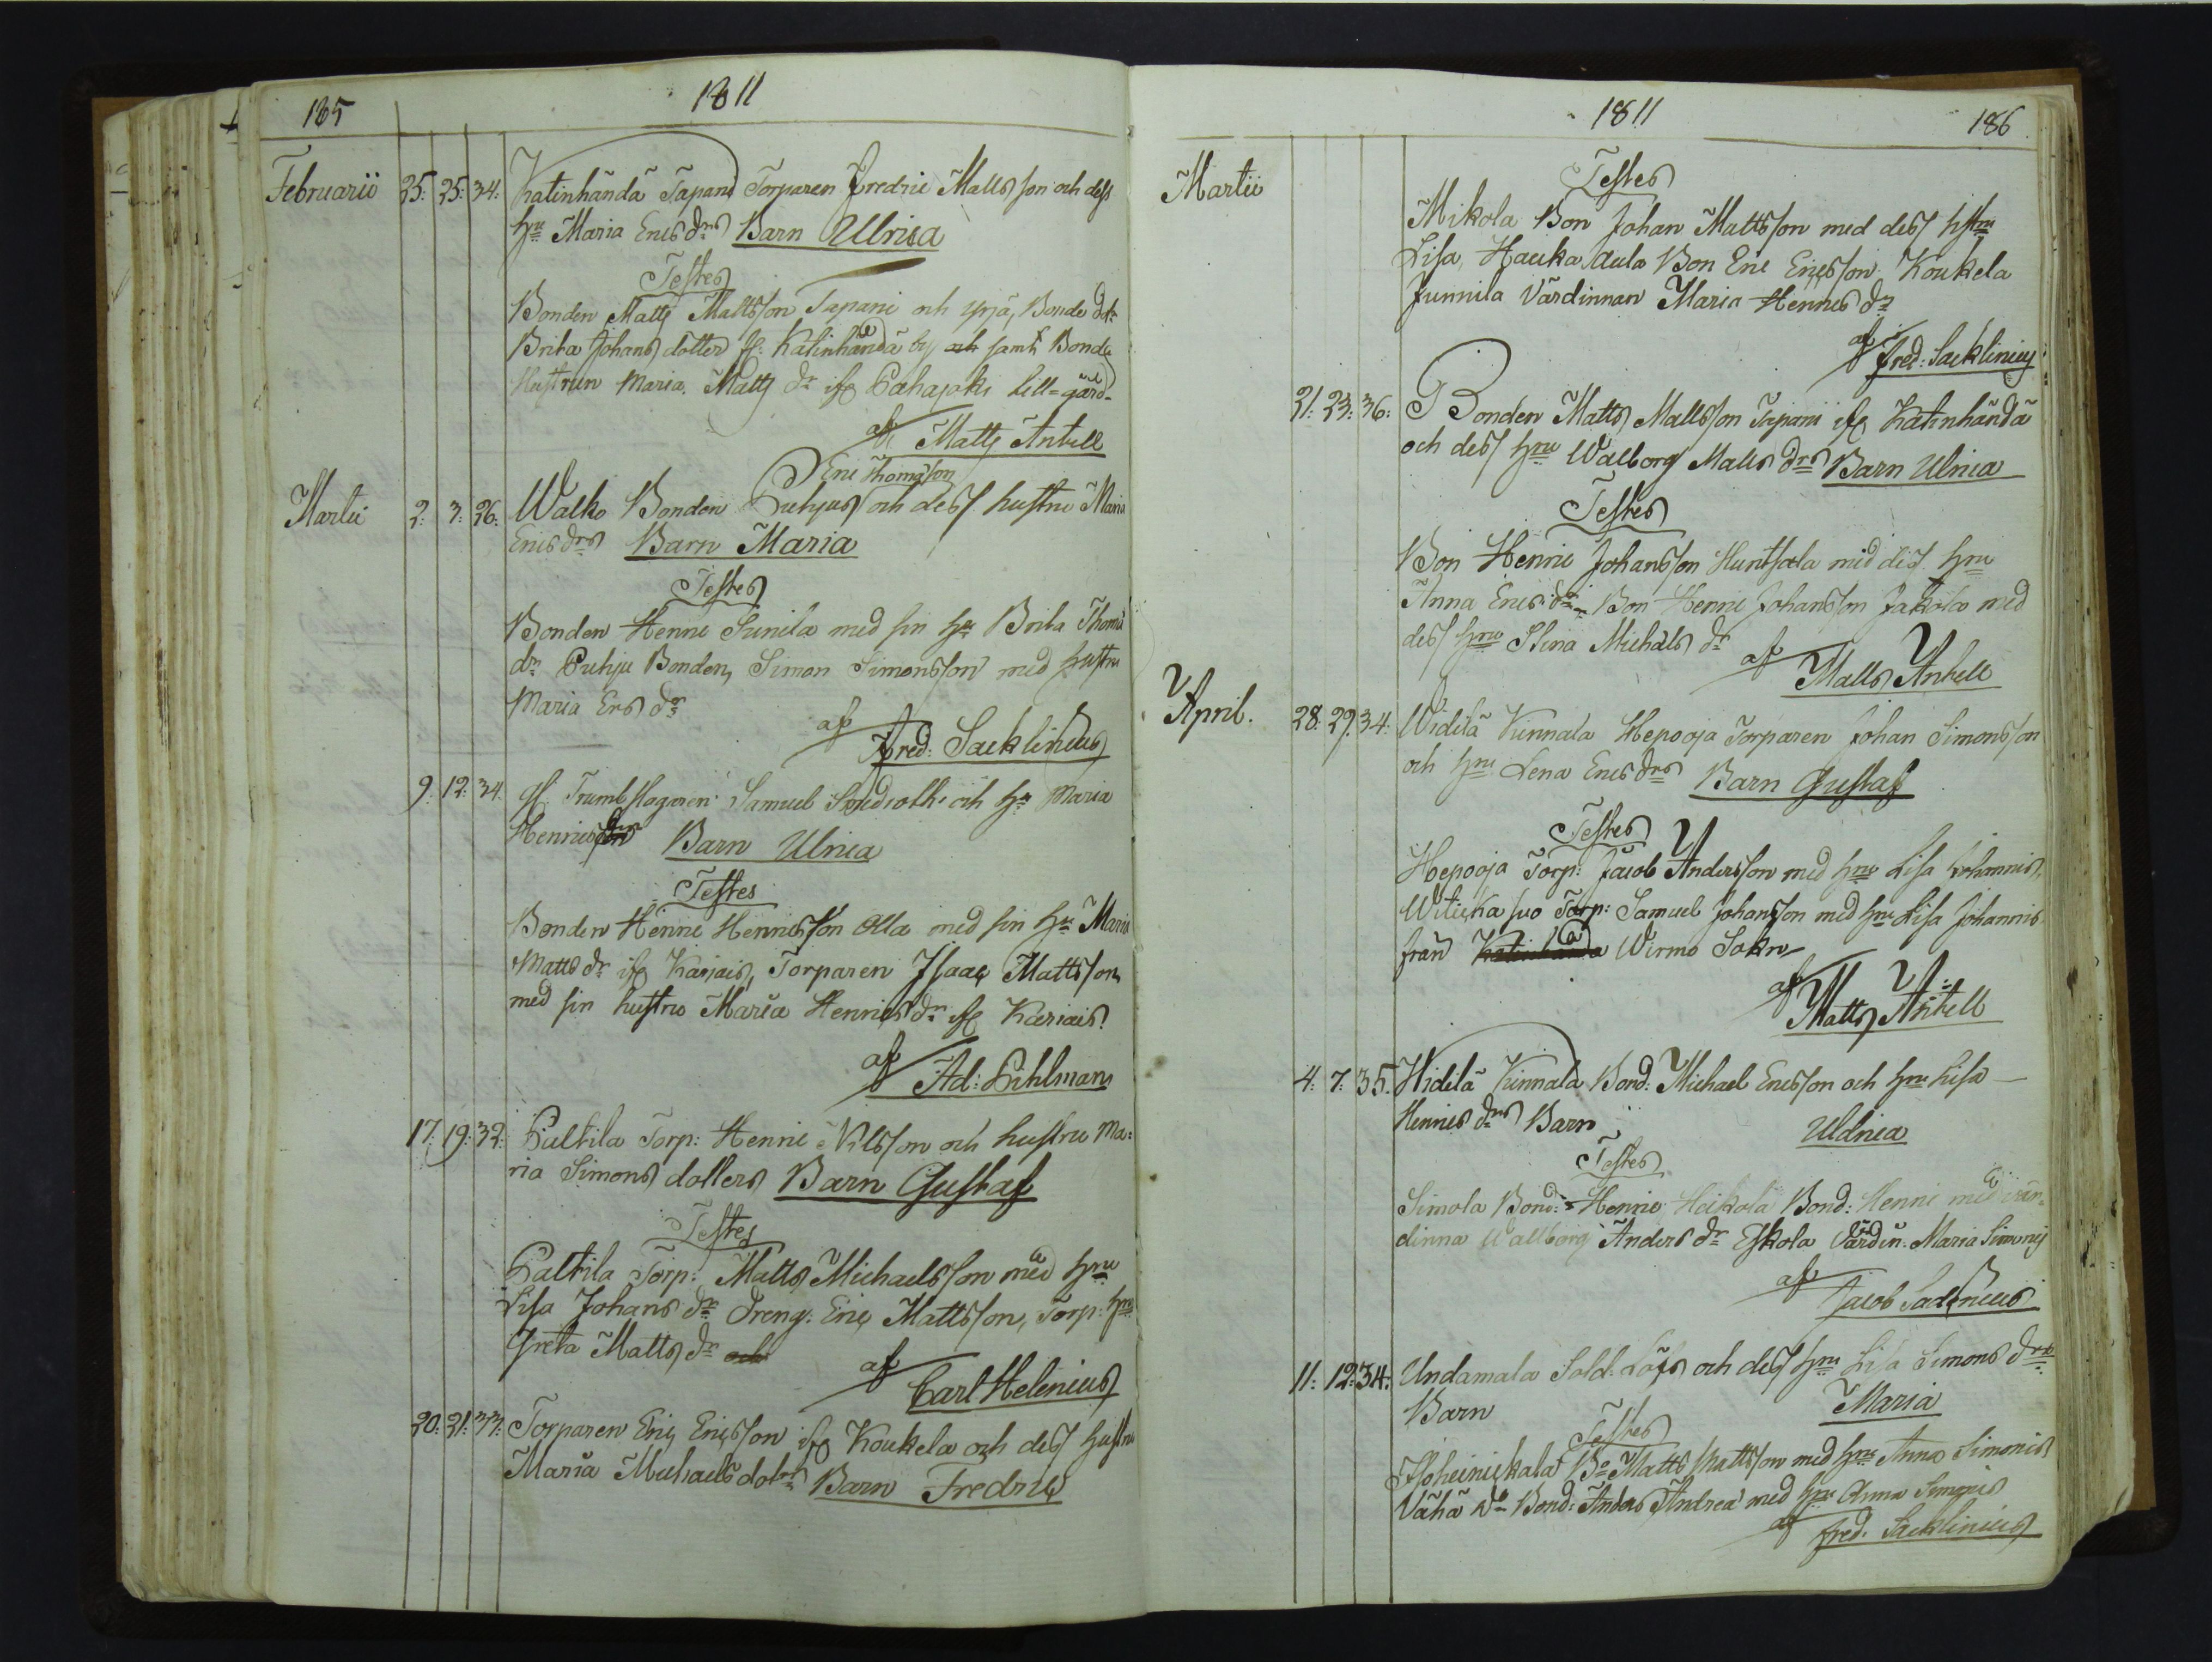 185
1811
Februarii 25: 25: 34: Katinhändä Tapani Torparen Fredric Matts son och dess
hru Maria Erics drs Barn Ulrica
Testes
Bonden Matts Mattsson Tapani och yrjä, Bonde dotr
Brita Johans dotter fr: Katinhändä by och samt Bonde
Hustrun Maria Matts dr ifr Pahajoki Lill=gård
af Matts Antell
Eric Thomasson
Martii 2: 3: 26: Walko Bonden Puhjus och dess hustru Maria
Erics drs Barn Maria
Testes
Bonden Henric Sunila med sin hr Brita Thoms
dr Puhju Bonden, Simon Simonsson med hustru
Maria Ers dr
af Fred: Sacklinius
9: 12: 34 Trumbslagaren Samuel och hr Maria
Henrics drs Barn Ulrica
Testes
Bonden Henric Henricsson Olla med sin hr Maria
Matts dr ifr Karjais, Torparen Isaac Mattsson
med sin hustru Maria Henrics dr ifr Kariais
af Ad: Lihlman
17: 19: 32: Paltila Torp: Henric Nilsson och hustru Ma=
ria Simons dotters Barn Gustaf
Testes
Paltila Torp: Matts Michaelsson med hru
Lisa Johans dr Dreng: Eric Mattsson, Torp: hru
Greta Matts dr och
af Carl Helenius
20: 21: 33: Torparen Eric Ericsson ifr Koukela och dess hustru
Maria Michaels dotrs Barn Fredric
1811
186
Martii
Testes
Mikola Bon Johan Mattsson med dess hstru
Lisa, Haukka Aula Bon Eric Ericsson Koukela
Junnila Värdinnan Maria Henrics dr
af Fred: Sacklinius
21: 23: 36: Bonden Matts Mattsson Tapani ifr Katinhändä
och dess hru Walborg Matts drs Barn Ulrica
Testes
Bon Henric Johansson Huntsala med des hru
Anna Erics dr Bon Henric Johansson Jakola med
dess hru Stina Michels dr
af Matts Antell
April. 28: 29: 34: Widilä Kinnala Hepooja Torparen Johan Simonsson
och hru Lena Erics drs Barn Gustaf
Testes
Hepooja Torp: Jacob Andersson med hru Lisa Johannis,
Torp: Samuel Johansson med hru Lisa Johannis
från Katinhända Wirmo Sokn
af Matts Antell
4: 7: 35: Widilä Kinnala Bond: Michael Ericsson och hru Lisa
Henrics drs Barn Uldrica
Testes
Simola Bond: Henric Heikola Bond: Henric med vär=
dinna Wallborg Anders dr Eskola Värdin: Maria Simonis
af Jacob Sadenius
11: 12: 34: Undamala Sold: Löfs och dess hru Lisa Simons drs
Barn Maria
Testes
Bo: Matts Mattsson med hru Anna Simonis
Vähä do Bond: Anders Andrea med hru Anna Simonis
af Fred. Sacklinius